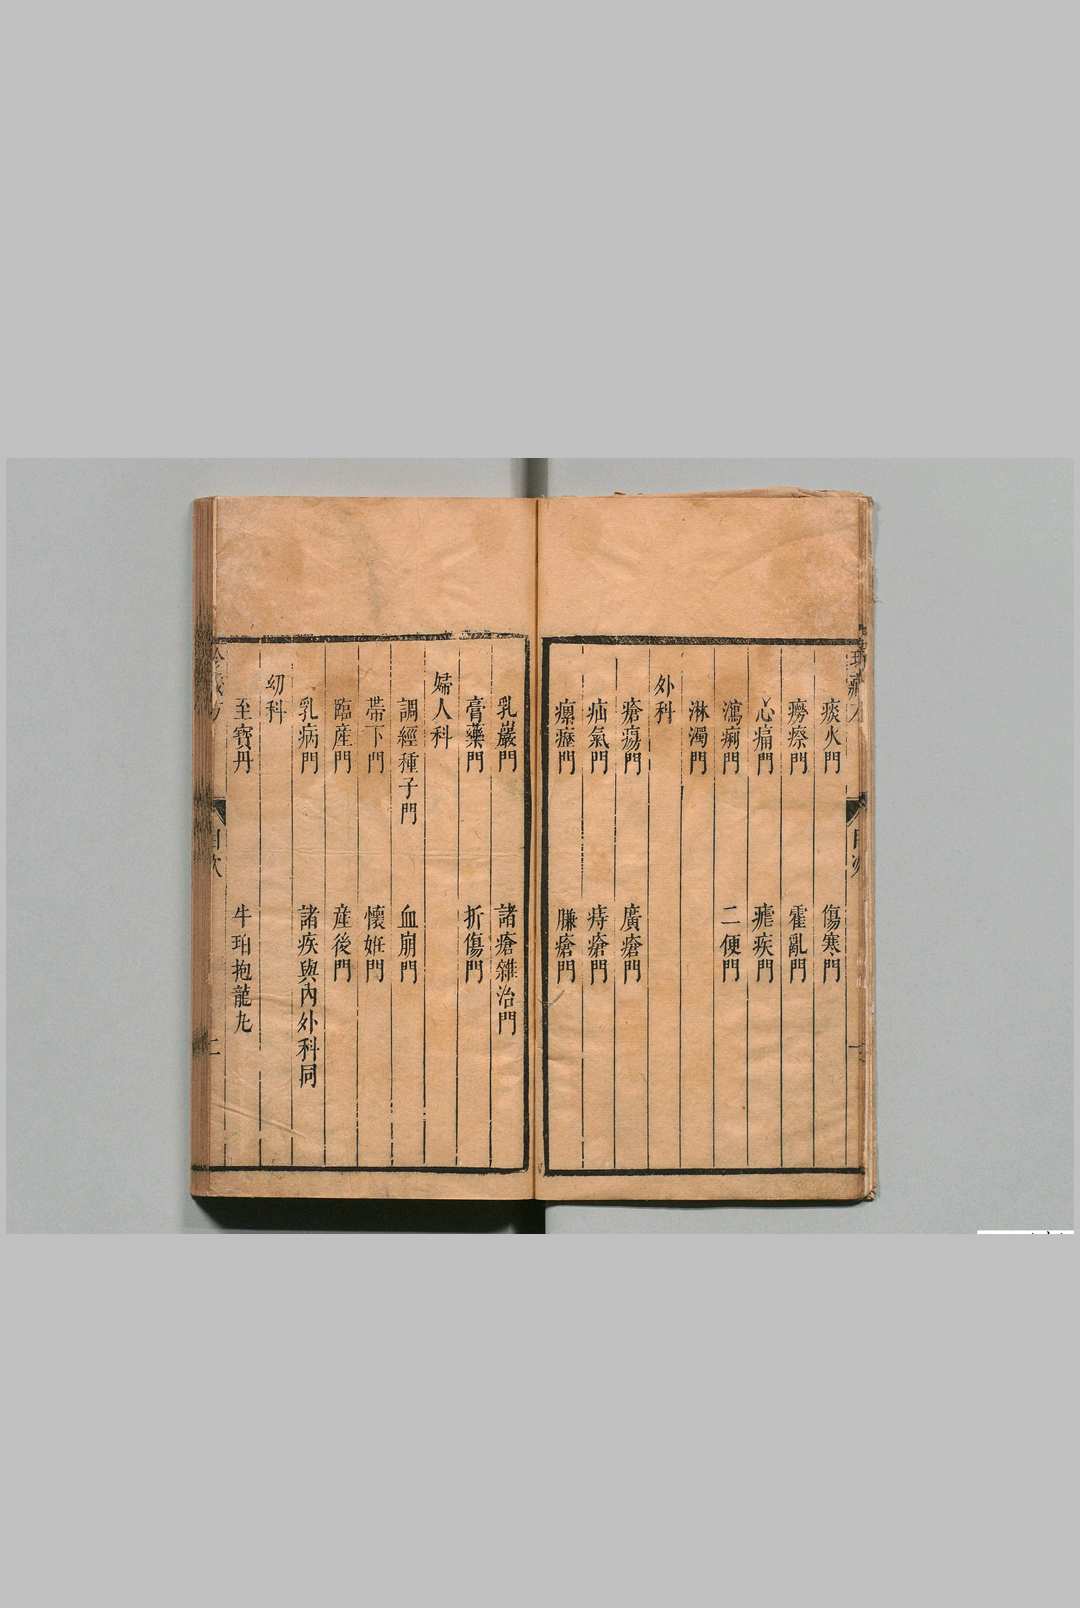 痰火門 傷寒門
癆瘵門 霍亂門
心痛門 瘧疾門
瀉痢門 二便門
淋濁門
外科
瘡瘍門 廣瘡門
疝氣門 痔瘡門
瘰癧門 臁瘡門
乳巖門 諸瘡雜治門
膏藥門 折傷門
婦人科
調經種子門 血崩門
帶下門 懷姙門
臨産門 産後門
乳病門 諸疾與內外科同
幼科
至寶丹 牛珀抱龍丸
目次 二